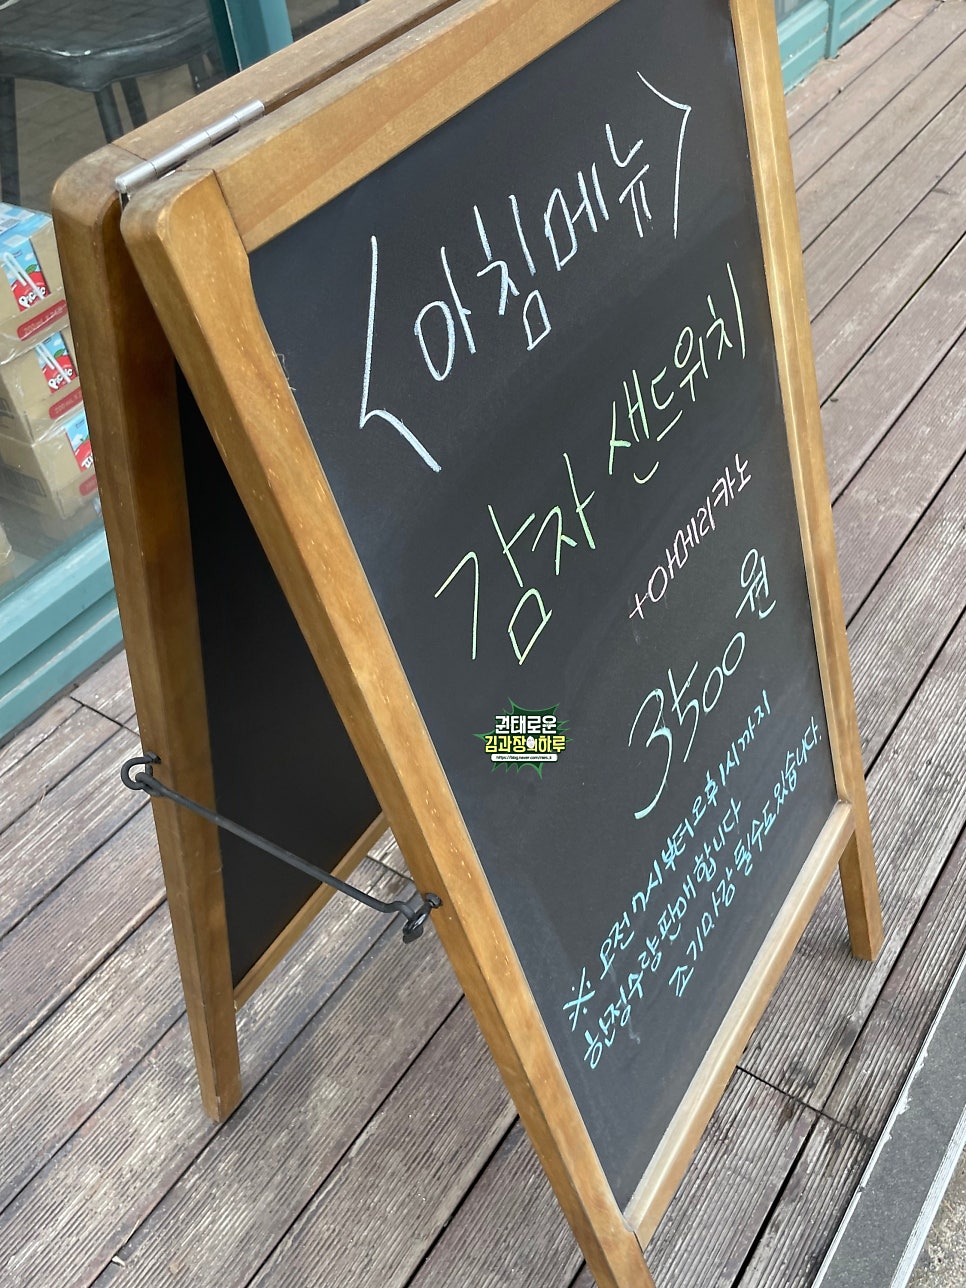 <아침메뉴>
감자 샌드위치
+아메리카노
3500원
※ 오전 7시부터 오후 1시까지
한정수량 판매합니다
조기마감 될수도 있습니다.
권태로운
김과장의하루
Picnic
Picnic